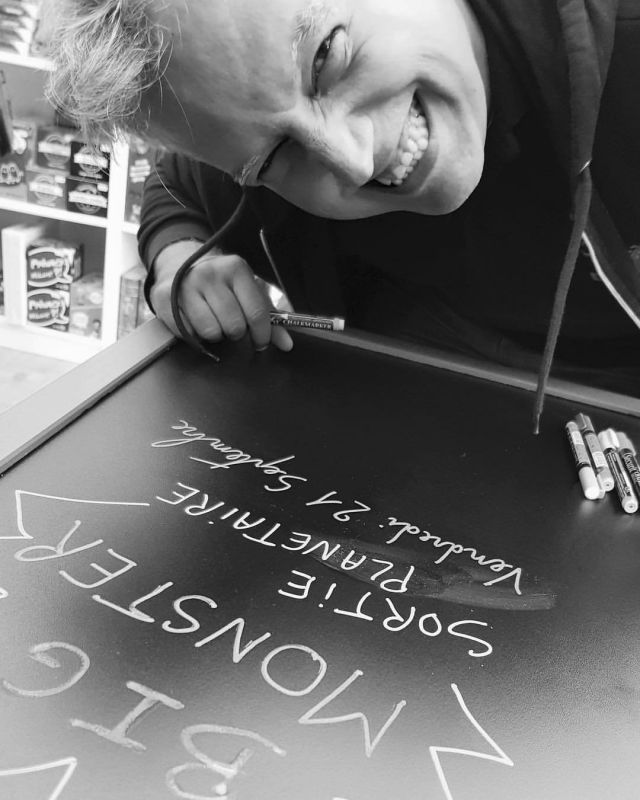 BIG
MONSTER
SORTiE
PLANETAiRE
Vendredi 21 Septembre
CHALKMARKER